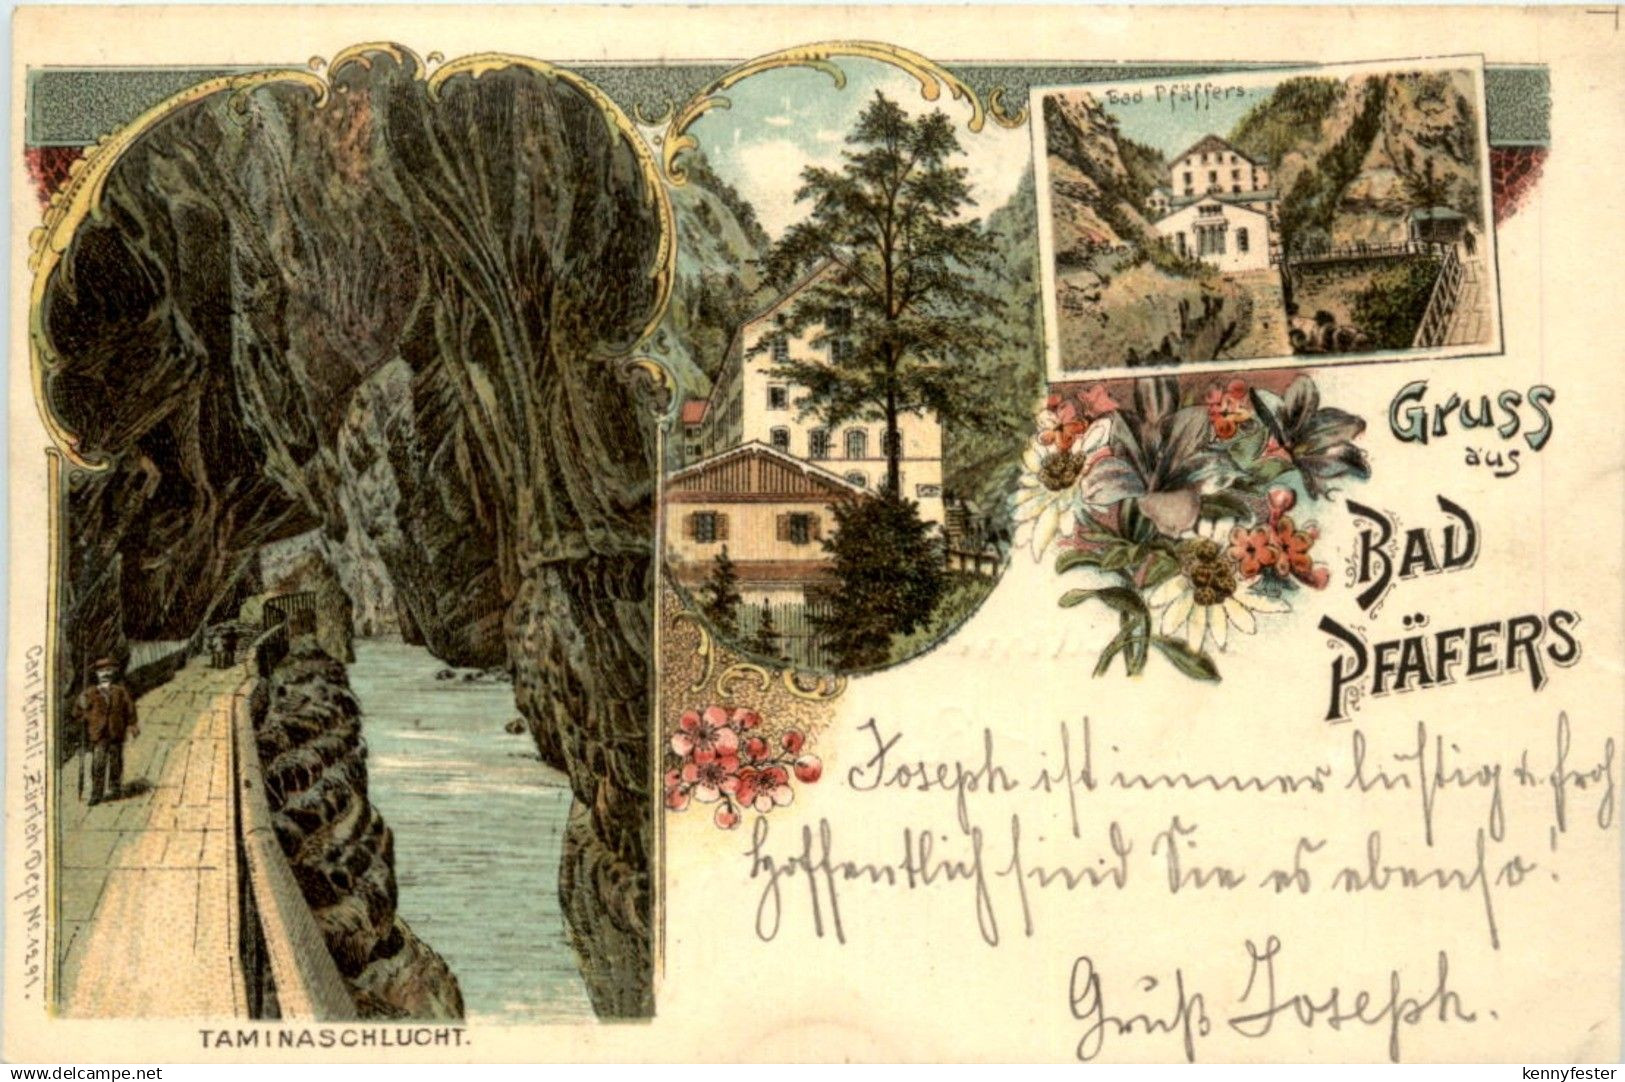 Bad Pfäffers.
Gruss
aus
BAD
PFÄFERS
Joseph ist immer lustig u. froh
hoffentlich sind Sie es ebenso!
Gruß Joseph.
TAMINASCHLUCHT.
Carl Künzli, Zürich Dep. No. 1291.
delcampe.net
kennyfester